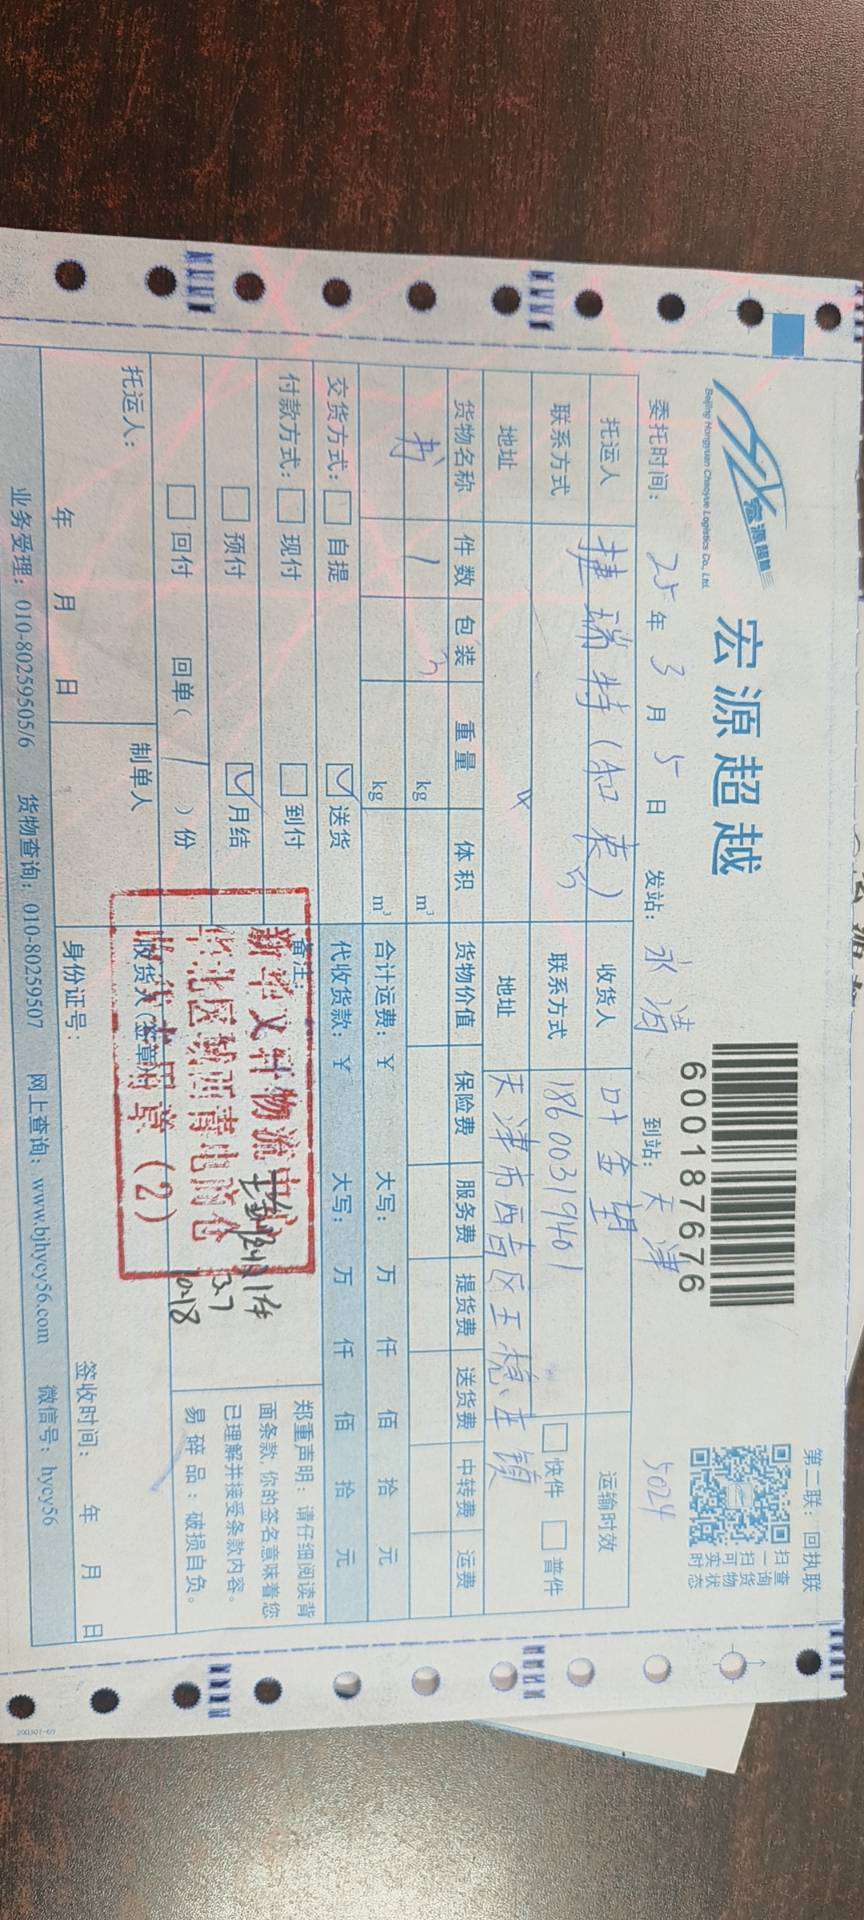 第二联：回执联
宏源超越
宏源超越
Beijing Hongyuan Chaoyue Logistics Co., Ltd.
600187676
扫一扫可实时
查询货物状态
委托时间： 25 年 3 月 5 日 发站： 永清 到站： 天津 5024
托运人 捷瑞特（知衷） 收货人 叶金堂 运输时效
联系方式 联系方式 18600319401 快件 普件
地址 地址 天津市西青区王稳庄镇
货物名称 件数 包装 重量 体积 货物价值 保险费 服务费 提货费 送货费 中转费 运费
书 1 kg m³
kg m³ 合计运费：￥ 大写： 万 仟 佰 拾 元
交货方式： 自提 送货 代收货款：￥ 大写： 万 仟 佰 拾 元
付款方式： 现付 到付 备注：
预付 月结
回付 回单（ 1 ）份
新华文轩物流
华北区域西青
（2）
1件
3.7
10-18
郑重声明：请仔细阅读背
面条款，你的签名意味着您
已理解并接受条款内容。
易碎品：破损自负。
托运人： 制单人 收货人（签章）：
年 月 日 身份证号： 签收时间： 年 月 日
业务受理：010-80259505/6 货物查询：010-80259507 网上查询：www.bjhycy56.com 微信号：hycy56